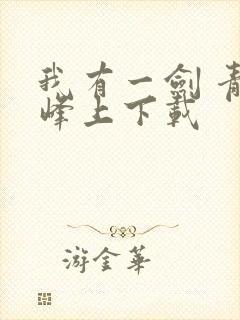 我有一劍 青
峰上下載
游金華